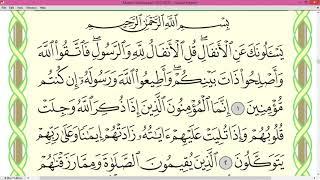 بِسْمِ اللَّهِ الرَّحْمَٰنِ الرَّحِيمِ
يَسْـَٔلُونَكَ عَنِ الْأَنفَالِ ۖ قُلِ الْأَنفَالُ لِلَّهِ وَالرَّسُولِ ۖ فَاتَّقُوا اللَّهَ
وَأَصْلِحُوا ذَاتَ بَيْنِكُمْ ۖ وَأَطِيعُوا اللَّهَ وَرَسُولَهُ إِن كُنتُم
مُّؤْمِنِينَ ١ إِنَّمَا الْمُؤْمِنُونَ الَّذِينَ إِذَا ذُكِرَ اللَّهُ وَجِلَتْ
قُلُوبُهُمْ وَإِذَا تُلِيَتْ عَلَيْهِمْ ءَايَٰتُهُ زَادَتْهُمْ إِيمَٰنًا وَعَلَىٰ رَبِّهِمْ
يَتَوَكَّلُونَ ٢ الَّذِينَ يُقِيمُونَ الصَّلَوٰةَ وَمِمَّا رَزَقْنَٰهُمْ